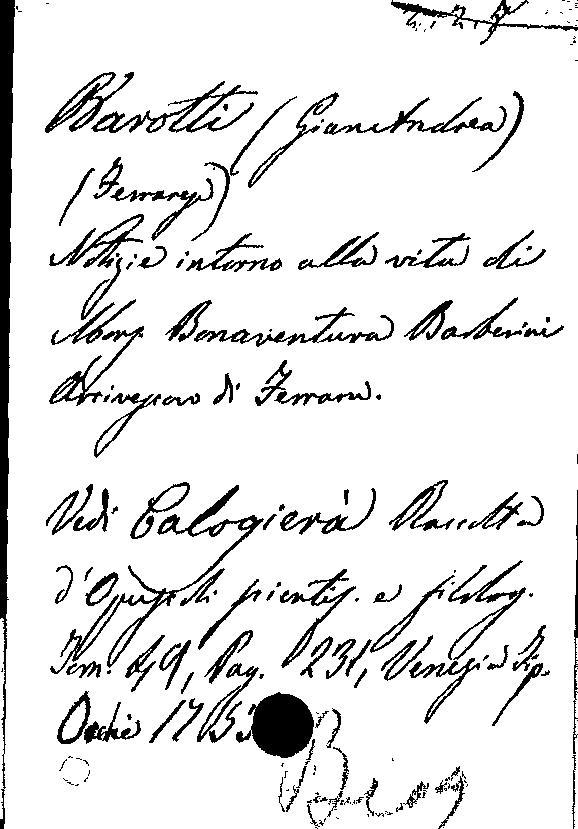 2.2.7
Barotti (Gianandrea)
(Ferrarese)
Notizie intorno alla vita di
Monsr Bonaventura Barberini
Arcivescovo di Ferrara.
Vedi Calogierà Raccolta
d'Opuscoli scientif. e filolog.
Tom. 49, Pag. 231, Venezia Tip.
Occhi 1753
Biog